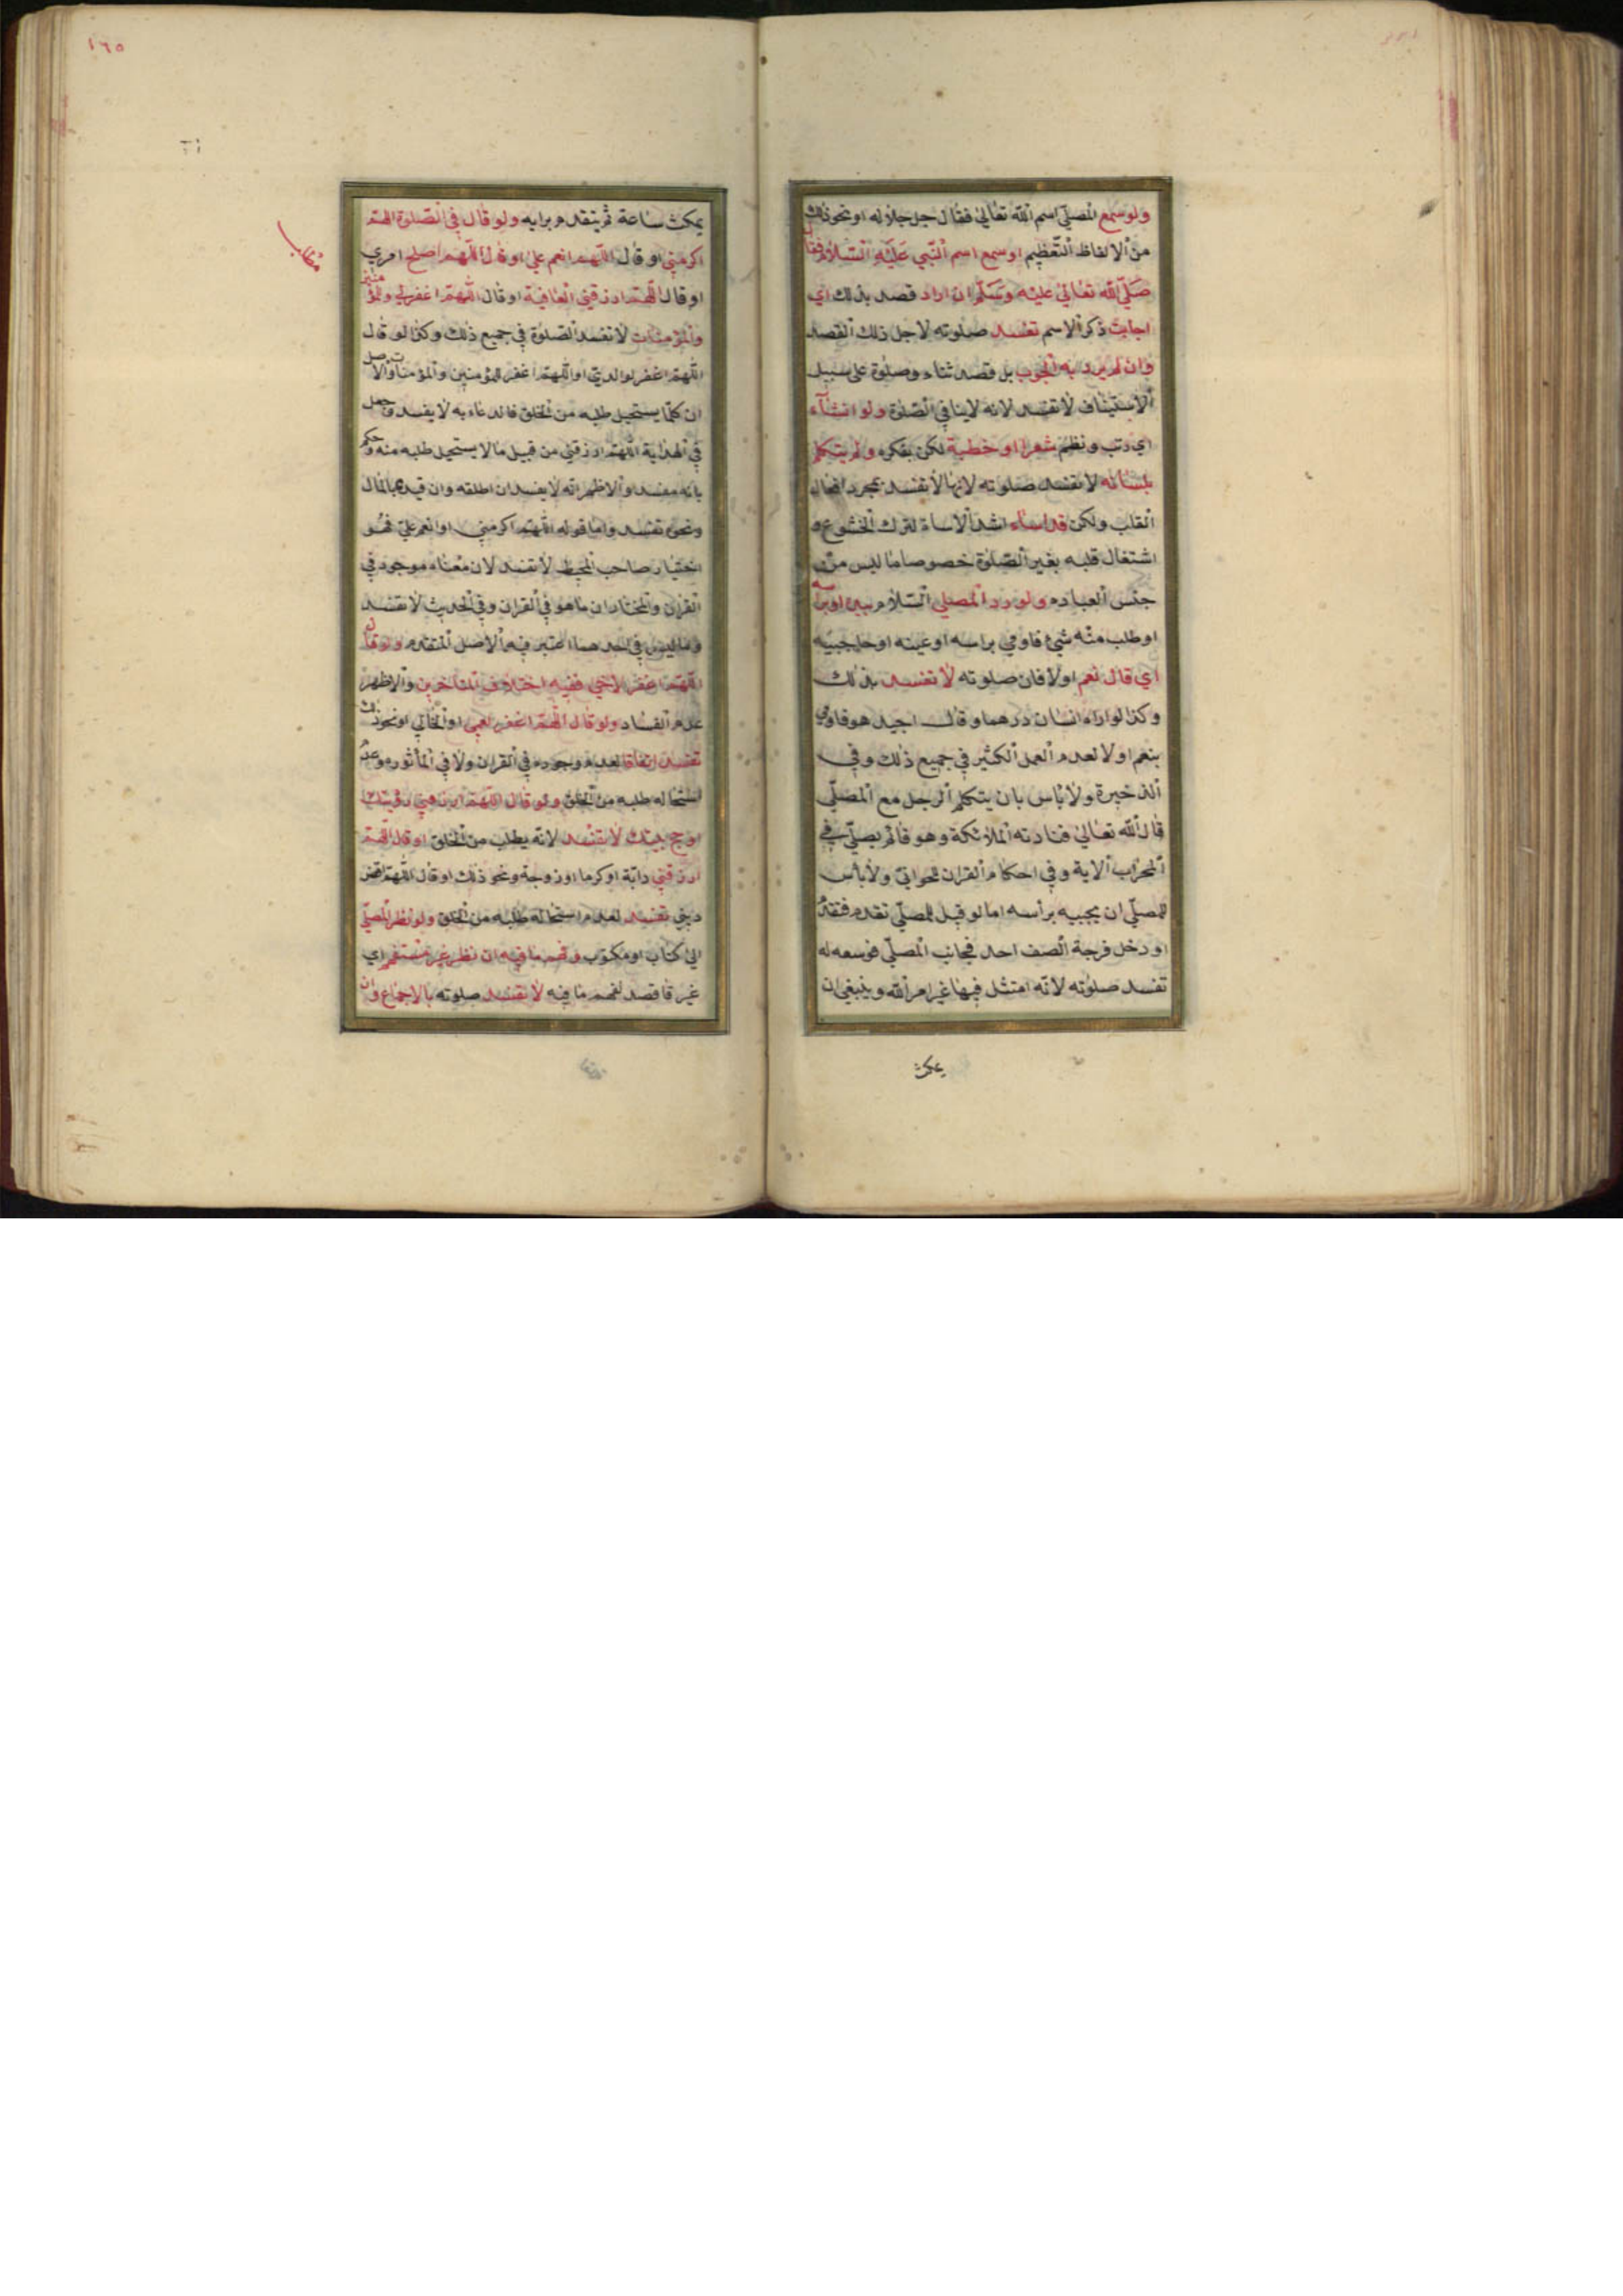 ولو سمع المصلي اسم الله تعالى فقال جل جلاله او نحو ذلك
من الالفاظ التعظيم او سمع اسم النبي عليه السلام فقال
صلى الله تعالى عليه وسلم ان اراد قصد بذلك اي
اجابت ذكر الاسم تفسد صلوته لاجل ذلك القصد
وان لم يرد به الجوب بل قصد ثناء وصلوة على سبيل
الاستيناف لا تفسد لانه لا ينافي الصلوة ولو انشأء
اي رتب ونظم شعرا او خطبة لكن بفكره ولم يتكلم
بلسانه لا تفسد صلوته لانها لا تفسد بمجرد افعال
القلب ولكن قد اساء اشد الاساة لترك الخشوع و
اشتغال قلبه بغير الصلوة خصوصا ما ليس من
جنس العباده ولو رد المصلي السلام بيد او برأسه
او طلب منه شيئ فاومي براسه او عينه او حاجبيه
اي قال نعم اولا فان صلوته لا تفسد بذلك
وكذا لو اراه انسان درهما وقال اجيد هو فاومي
بنعم اولا لعدم العمل الكثير في جميع ذلك وفي
الذخيرة ولا بأس بان يتكلم الرجل مع المصلي
قال الله تعالى فنادته الملائكة وهو قائم يصلي في
المحراب الاية وفي احكام القران للحواني ولا بأس
للمصلي ان يجيبه برأسه اما لو قيل للمصلي تقدم فتقدم
او دخل فرجة الصف احد فجانب المصلي فوسعه له
تفسد صلوته لانه امتثل فيها غير امر الله وينبغي ان
يمكث
١٦٥
يمكث ساعة ثم يتقدم برايه ولو قال في الصلوة اللهم
اكرمني او قال اللهم انعم علي او قال اللهم اصلح امري
او قال اللهم ارزقني العافية او قال اللهم اغفر لي وللمؤمنين
والمؤمنات لا تفسد الصلوة في جميع ذلك وكذا لو قال
اللهم اغفر لوالدي او اللهم اغفر للمؤمنين والمؤمنات والاصل
ان كلما يستحيل طلبه من الخلق فالدعاء به لا يفسد وجعل
في الهداية اللهم ارزقني من قبيل ما لا يستحيل طلبه منه وحكم
بانه مفسد والاظهر انه لا يفسد ان اطلقه وان قيده بالمال
ونحوه تفسد واما قوله اللهم اكرمني او انعم علي فهو
اختيار صاحب المحيط لا تفسد لان معناه موجود في
القران والمختار ان ما هو في القران وفي الحديث لا تفسد
وما ليس في احدهما اعتبر فيه الاصل المتقدم ولو قال
اللهم اغفر لاخي ففيه اختلاف المتأخرين والاظهر
عدم الفساد ولو قال اللهم اغفر لعمي او لخالي او نحو ذلك
تفسد اتفاقا لعدم وجوده في القران ولا في المأثور وعدم
استحاله طلبه من الخلق ولو قال اللهم ارزقني رؤيتك
او حج بيتك لا تفسد لانه يطلب من الخلق او قال اللهم
ارزقني دابة او كرما او زوجة ونحو ذلك او قال اللهم اقض
ديني تفسد لعدم استحالة طلبه من الخلق ولو نظر المصلي
الى كتاب او مكتوب وفهم ما فيه ان نظر غير مستفهم اي
غير قاصد لفهم ما فيه لا تفسد صلوته بالاجماع وان